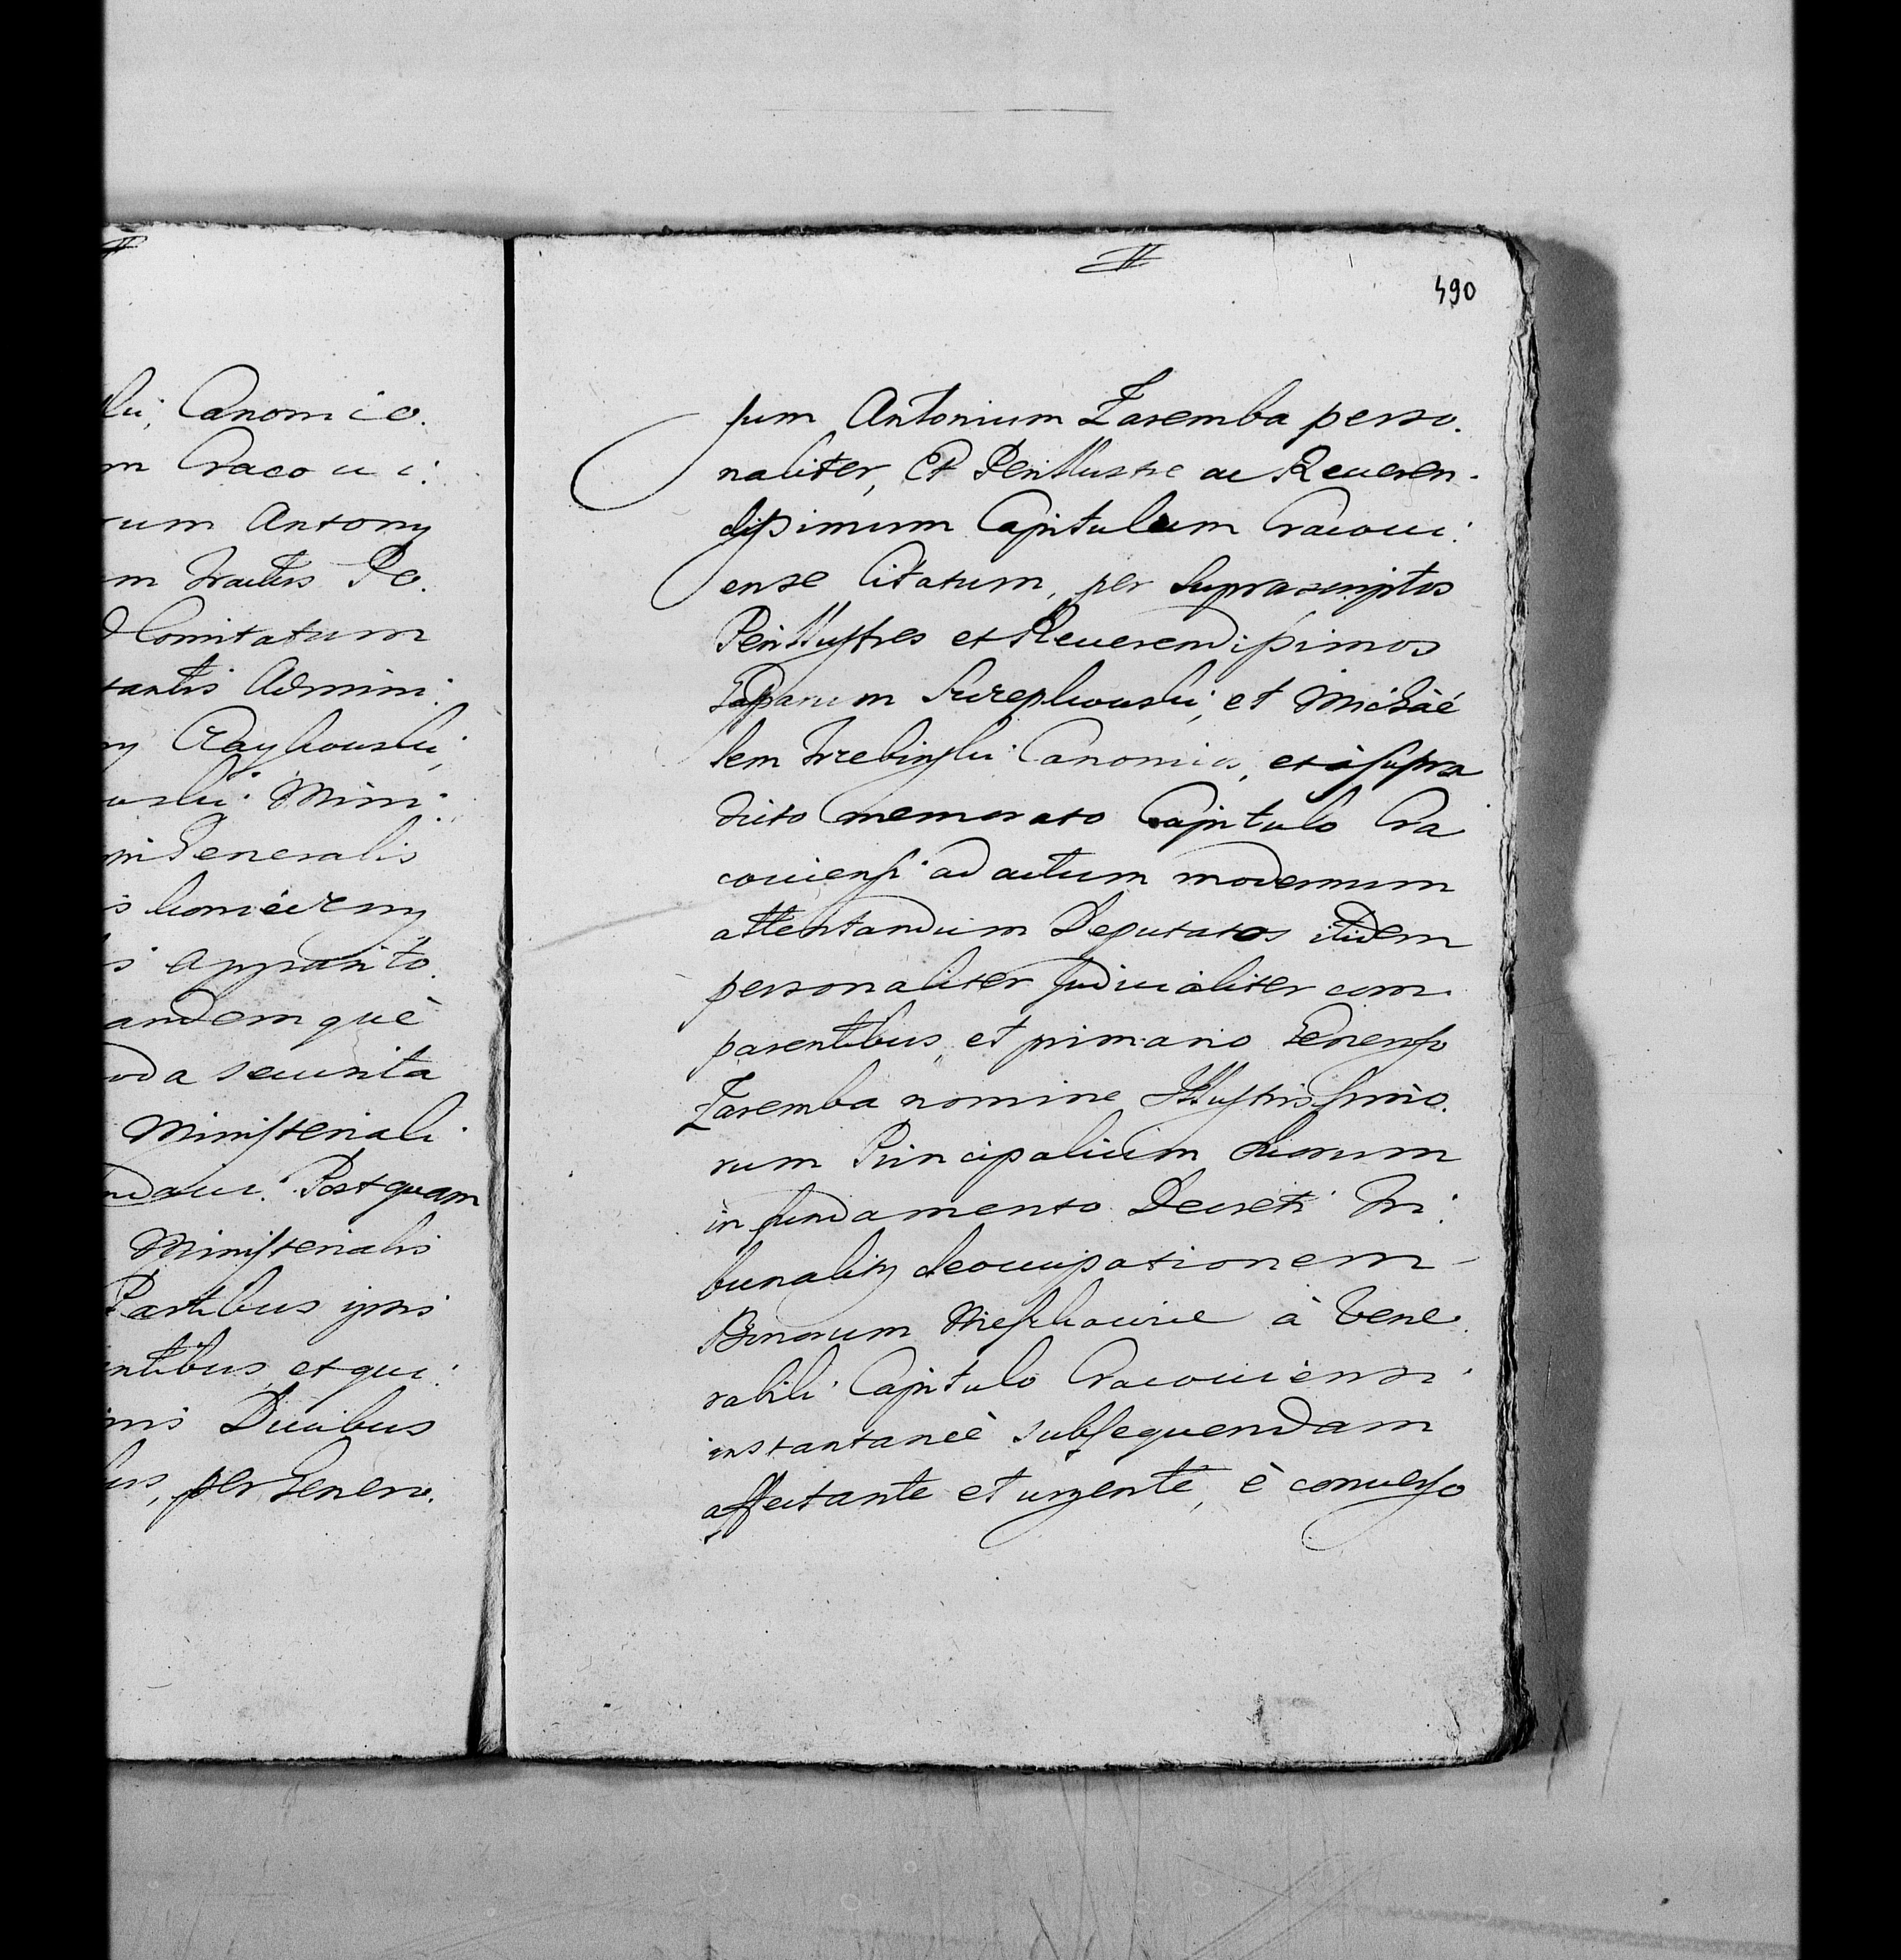 lii, Canonico.
m Cracoui:
rum Antony
m Po.
Comitatum
tantis Admini.
ny
uski Mini:
Generalis
s
s apparito.
andem què
oda securita
Ministeriali
ndaui. Postquam
Ministerialis
Partibus ipsis
ntibus, et qui:
mis Ducibus
bus, per Genero.
#
490
sum Antonium Zaremba perso.
naliter, Et Perillustre ac Reueren.
dissimum Capitulum Cracoui:
ense Citatum, per Suprascriptos
Perillustres et Reuerendissimos
Gasparum et Michaé
lem Trzebinski Canonicos, et à supra
dicto memorato Capitulo Cra
couiensi ad actum modernum
attentandum Deputatos itidem
personaliter Judicialiter com.
parentibus, et primario Generoso
Zaremba nomine Illustrissimo.
rum Principalium Suorum
in fundamento Decreti Tri:
bunalitij deoccupationem
Bonorum à Vene.
rabili Capitulo Cracouiensi
instantaneè subsequendam
affectante et urgente, è conuerso